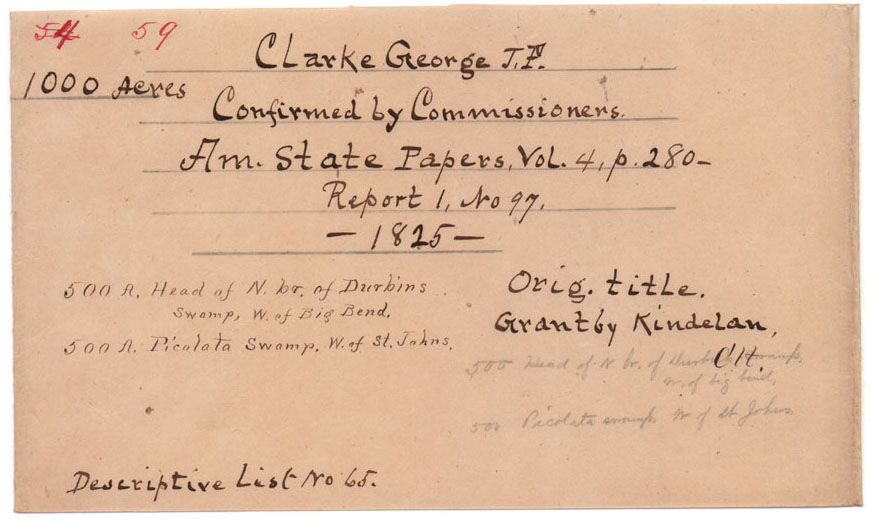 54 59
Clarke George J.F.
1000 Acres
Confirmed by Commissioners.
Am. State Papers, Vol. 4, p. 280-
Report 1, No 97.
- 1825 -
500 A. Head of N. br. of Durbins
Swamp, W. of Big Bend.
500 A. Picolata Swamp. W. of St. Johns.
Orig. title.
Grant by Kindelan,
500 Head of N br. of Durbins Swamp,
W. of big bend,
500 Picolata swamp. W of St Johns.
Descriptive List No 65.